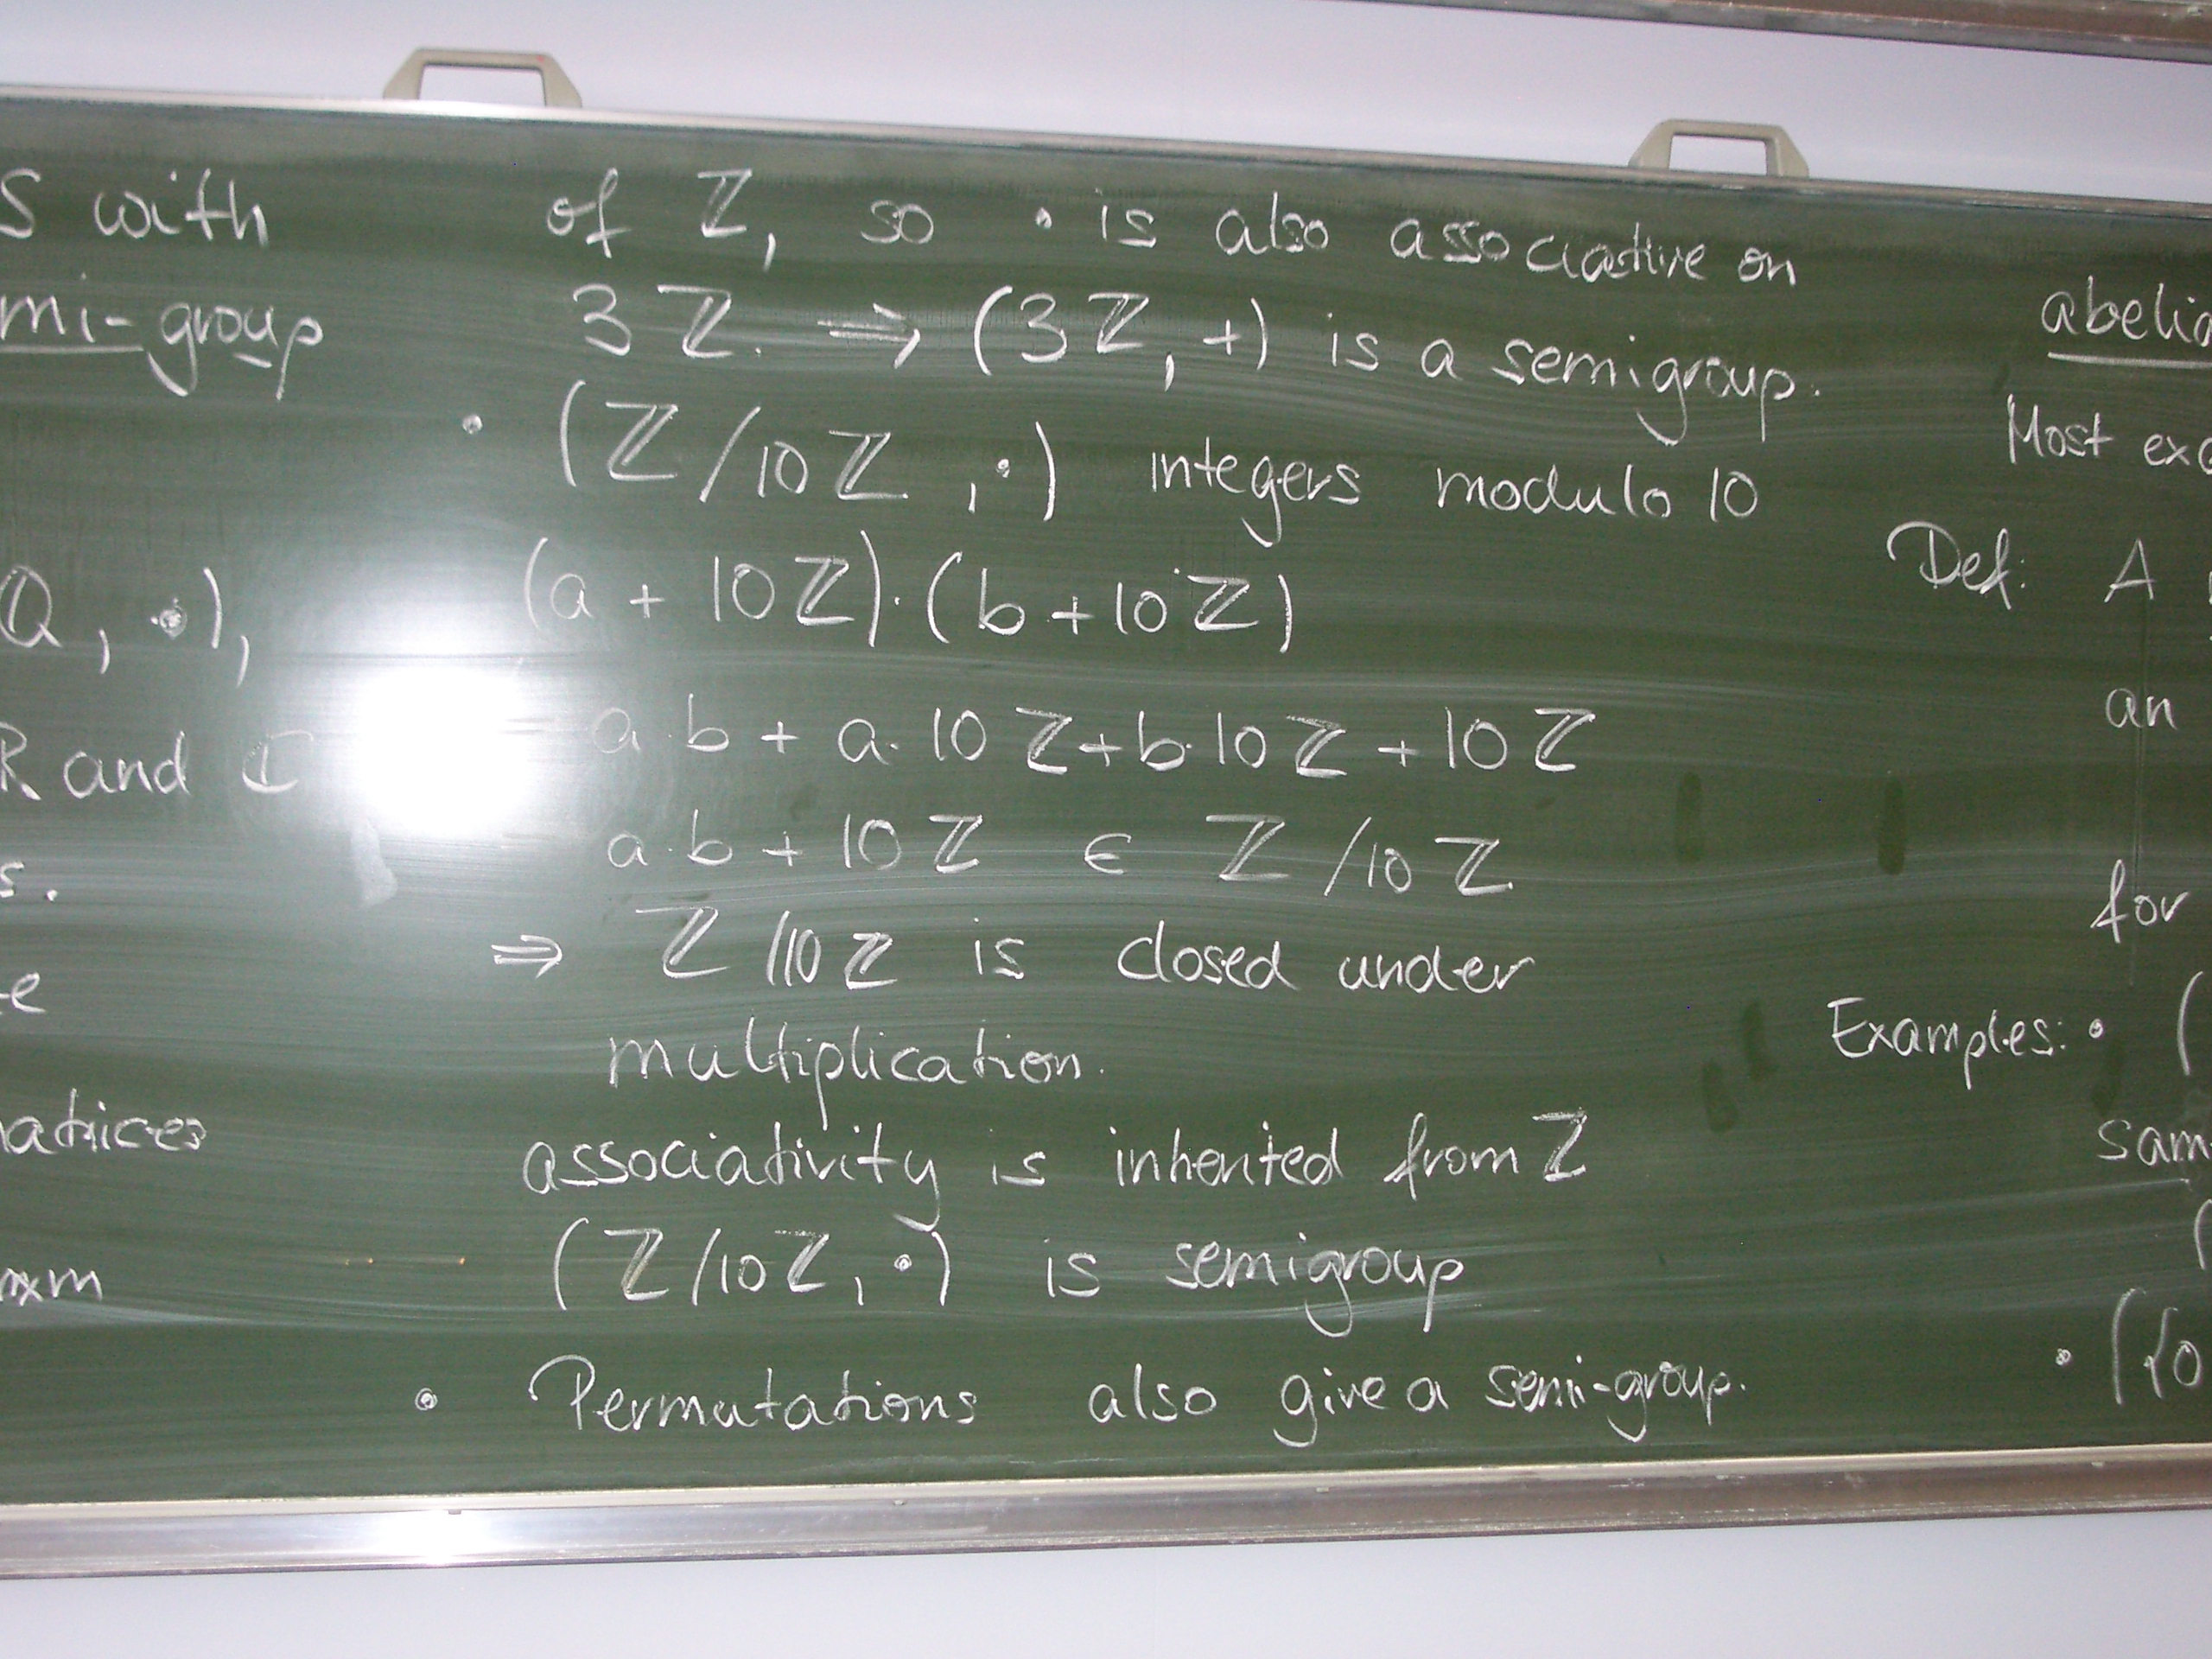 S with
mi-group
Q, •),
R and ℂ
s.
e
atrices
nxm
of ℤ, so • is also associative on
3ℤ. ⇒ (3ℤ, +) is a semigroup.
• (ℤ/10ℤ, •) integers modulo 10
(a + 10ℤ)·(b + 10ℤ)
= a·b + a·10ℤ + b·10ℤ + 10ℤ
= a·b + 10ℤ ∈ ℤ/10ℤ
⇒ ℤ/10ℤ is closed under
multiplication.
associativity is inherited from ℤ
(ℤ/10ℤ, •) is semigroup
• Permutations also give a semi-group.
abelia
Most exa
Def: A
an
for
Examples: • (
sam
(
• ({0